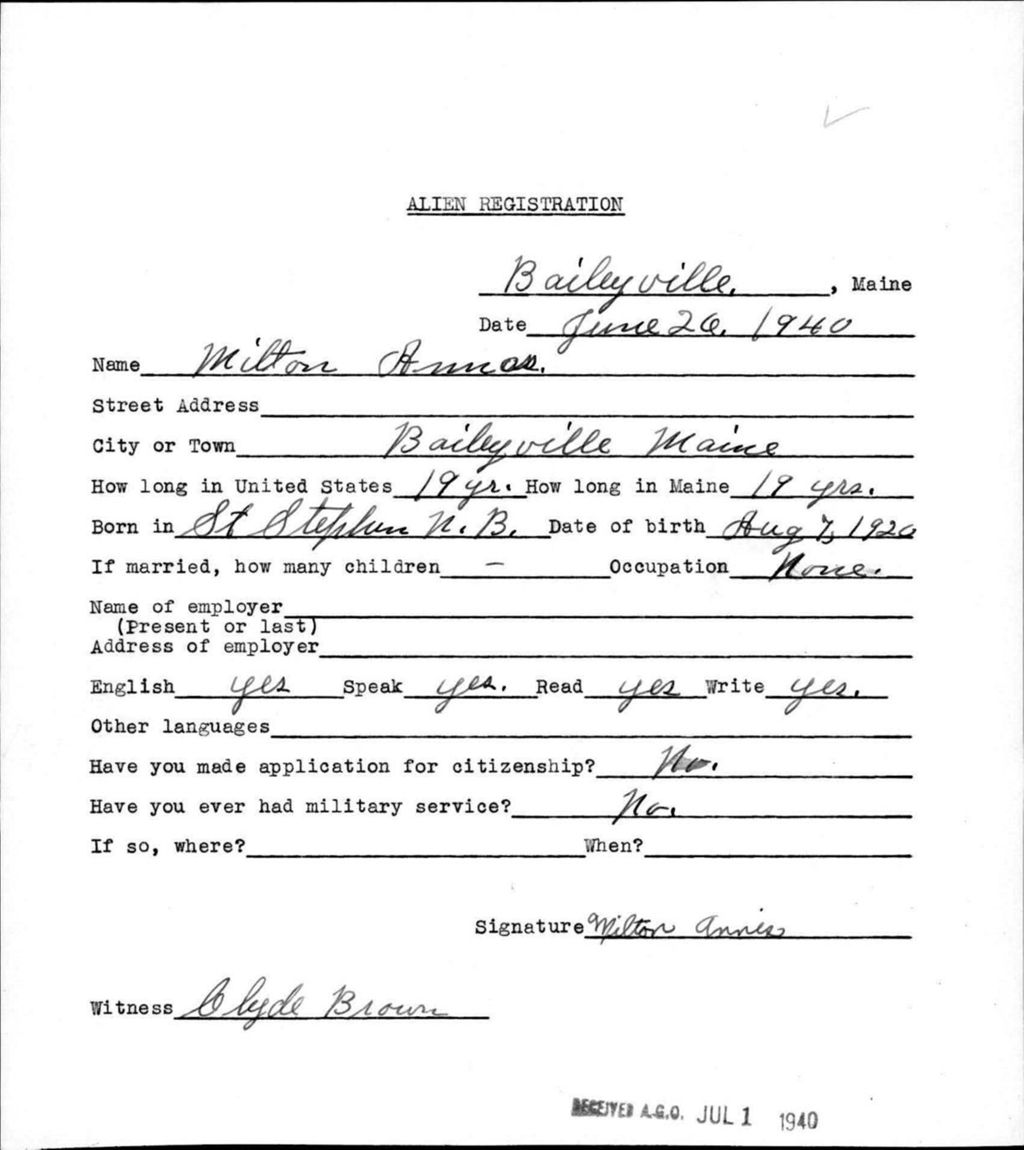 ALIEN REGISTRATION
Baileyville, , Maine
Date June 26, 1940
Name Milton Annas.
Street Address
City or Town Baileyville Maine
How long in United States 19 yr. How long in Maine 19 yrs.
Born in St Stephen N. B. Date of birth Aug 7, 1920
If married, how many children – Occupation None.
Name of employer
(Present or last)
Address of employer
English yes Speak yes. Read yes Write yes.
Other languages
Have you made application for citizenship? No.
Have you ever had military service? No.
If so, where? When?
Signature Milton Annis
Witness Clyde Brown
RECEIVED A.G.O. JUL 1 1940